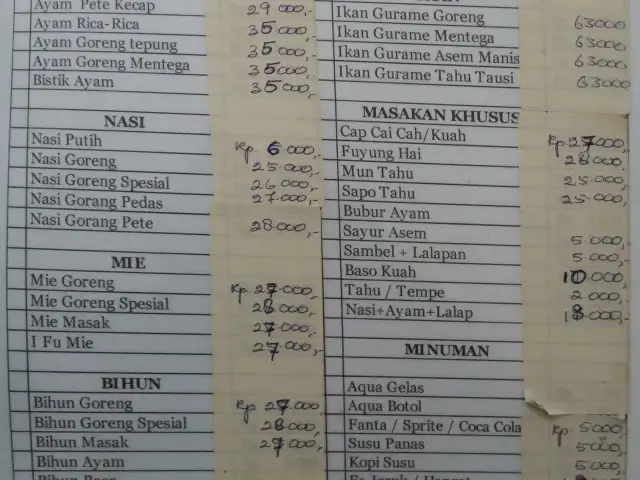 Ayam Pete Kecap 29 000,-
Ayam Rica-Rica 35 000,-
Ayam Goreng tepung 35 000,-
Ayam Goreng Mentega 35 000,-
Bistik Ayam 35 000,-
NASI
Nasi Putih Rp. 6 000,-
Nasi Goreng 25.000,-
Nasi Goreng Spesial 26 000,-
Nasi Gorang Pedas 27.000,-
Nasi Gorang Pete 28.000,-
MIE
Mie Goreng Rp 27.000,-
Mie Goreng Spesial 28 000,-
Mie Masak 27.000,-
I Fu Mie 27 000,-
BIHUN
Bihun Goreng Rp 27.000
Bihun Goreng Spesial 28.000,
Bihun Masak 27 000,-
Bihun Ayam
Ikan Gurame Goreng 63000
Ikan Gurame Mentega 63000
Ikan Gurame Asem Manis 63000
Ikan Gurame Tahu Tausi 63000
MASAKAN KHUSUS
Cap Cai Cah/Kuah Rp. 27 000,
Fuyung Hai 28 000
Mun Tahu 25.000,
Sapo Tahu 25.000,
Bubur Ayam
Sayur Asem 5.000,
Sambel + Lalapan 5 000,-
Baso Kuah 10 000,
Tahu / Tempe 2 000,
Nasi+Ayam+Lalap 18 000,-
MINUMAN
Aqua Gelas
Aqua Botol
Fanta / Sprite / Coca Cola Rp. 5000,
Susu Panas 5000,
Kopi Susu 5000